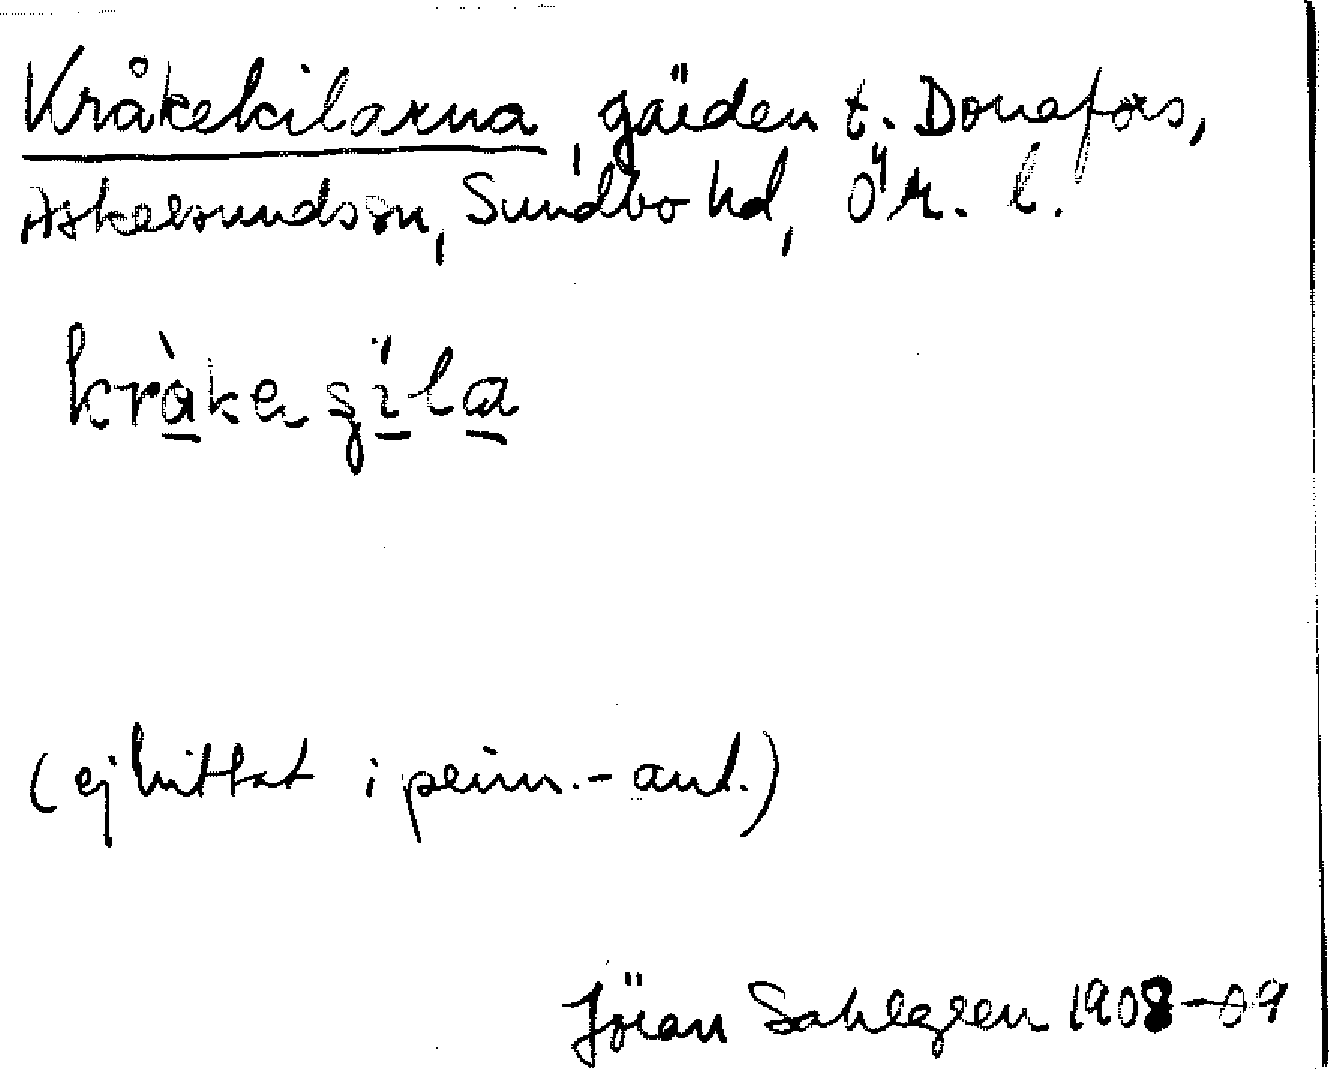 Kråkekilarna, gärden t. Donafors,
Askersundssn, Sundbo hd, Ör. l.
kràke
(ej hittat i prim.-ant.)
Jöran Sahlgren 1908-09